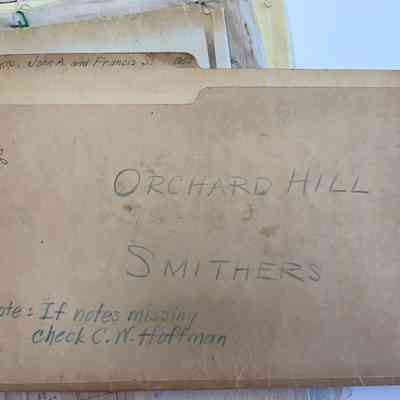 John A. and Francis S.
ORCHARD HILL
SMITHERS
ote: If notes missing
check C. W. Hoffman